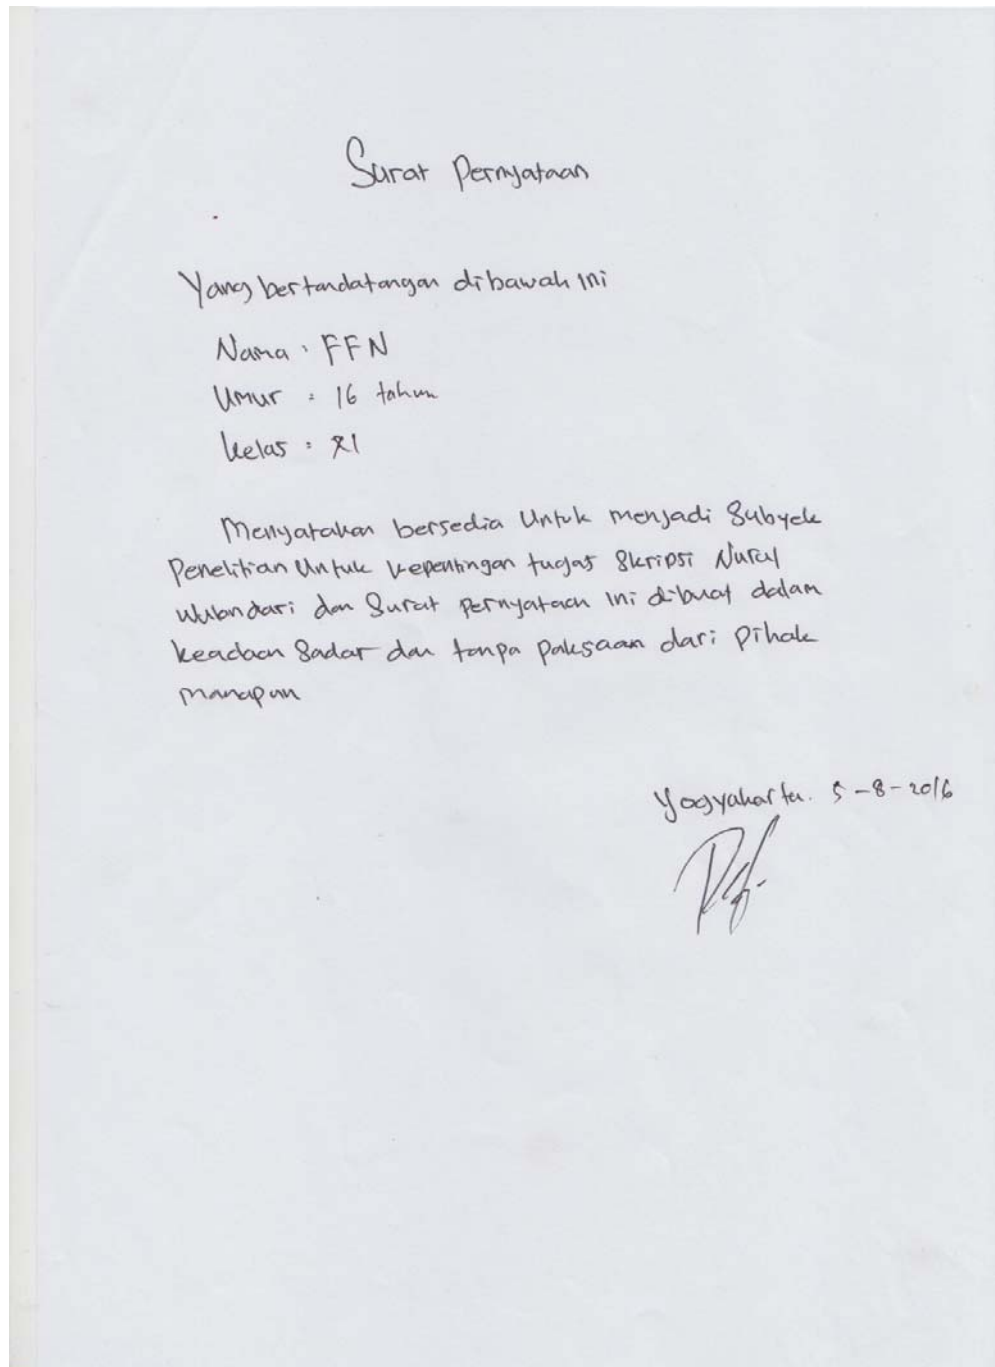 Surat Pernyataan
Yang bertandatangan dibawah ini
Nama : FFN
Umur : 16 tahun
Kelas : XI
Menyatakan bersedia Untuk menjadi Subyek
Penelitian Untuk kepentingan tugas Skripsi Nurul
Wulandari dan Surat pernyataan ini dibuat dalam
keadaan Sadar dan tanpa paksaan dari Pihak
manapun
Yogyakarta. 5-8-2016